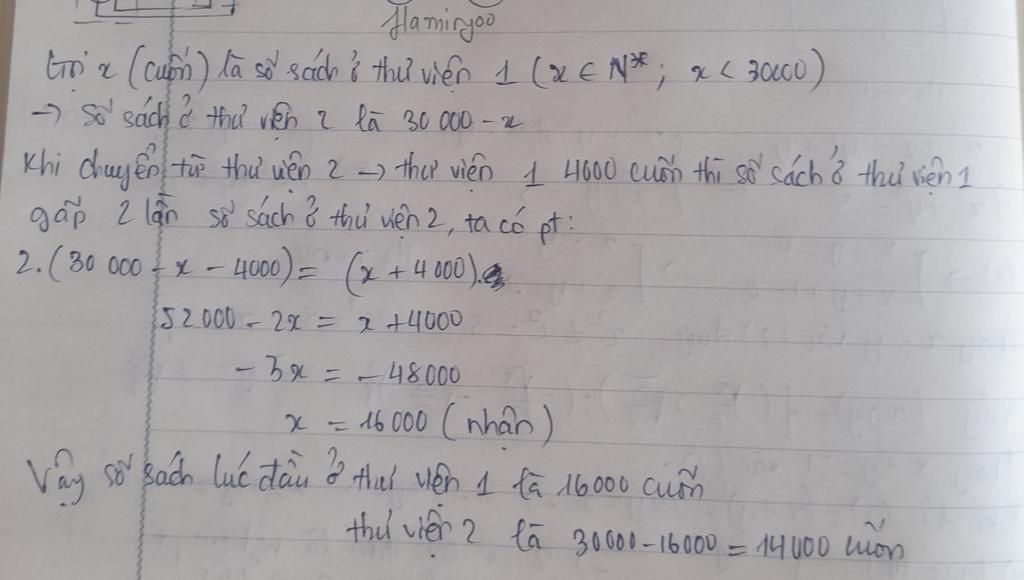 Hamiryoo
Gọi x (cuốn) là số sách ở thư viện 1 (x ∈ N*; x < 30000)
→ số sách ở thư viện 2 là 30 000 - x
Khi chuyển từ thư viện 2 → thư viện 1 4000 cuốn thì số sách ở thư viện 1
gấp 2 lần số sách ở thư viện 2, ta có pt:
2.(30 000 - x - 4000) = (x + 4000).
52000 - 2x = x + 4000
- 3x = - 48000
x = 16000 (nhận)
Vậy số sách lúc đầu ở thư viện 1 là 16000 cuốn
thư viện 2 là 30000 - 16000 = 14000 cuốn